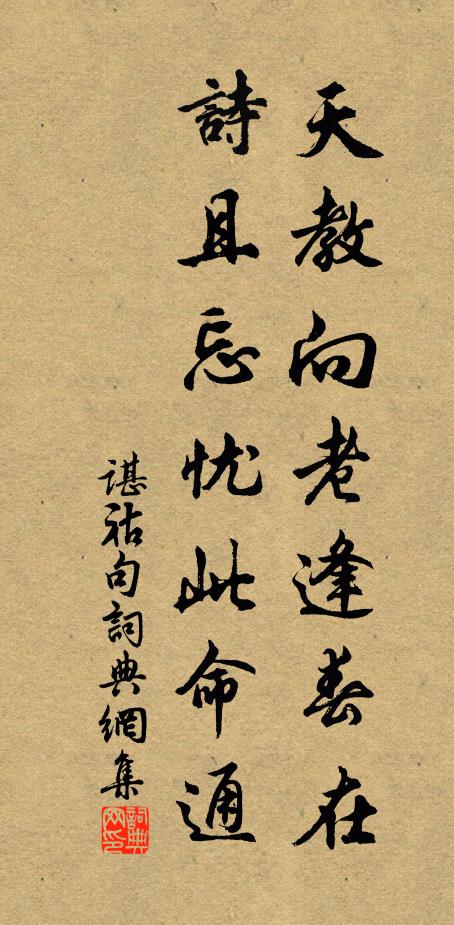 天教向老逢春在
詩且忘忧此命通
谌祜句詞典網集
詞典網印